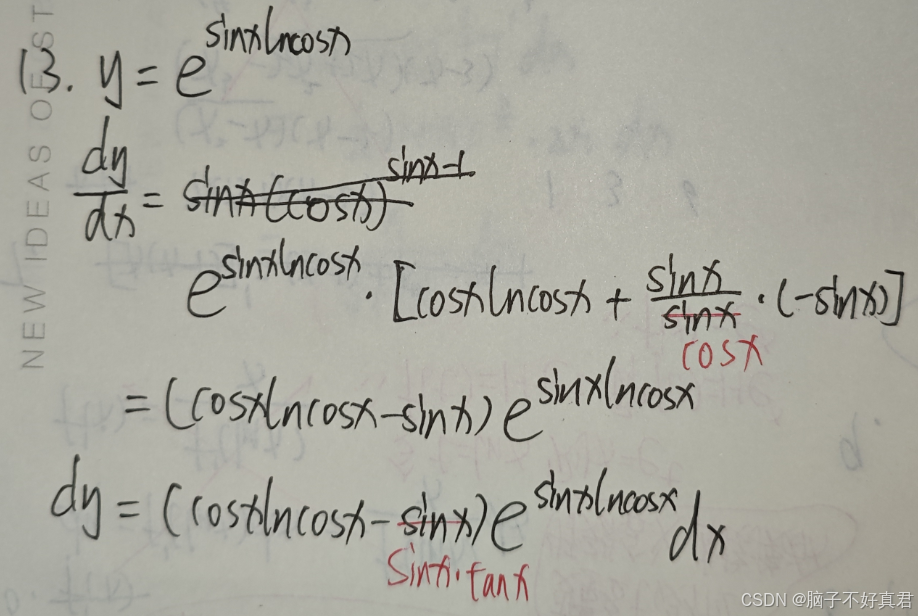 NEW IDEAS OF ST
13. y = e^{sinxlncosx}
dy/dx = ~~sinx(cosx)^{sinx-1}~~
e^{sinxlncosx} · [cosxlncosx + sinx/~~sinx~~ · (-sinx)]
cosx
= (cosxlncosx - sinx) e^{sinxlncosx}
dy = (cosxlncosx - ~~sinx~~) e^{sinxlncosx} dx
sinx·tanx
CSDN @脑子不好真君